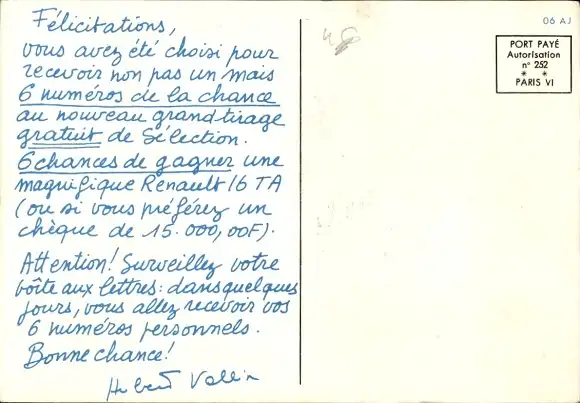 Félicitations,
vous avez été choisi pour
recevoir non pas un mais
6 numéros de la chance
au nouveau grand tirage
gratuit de Sélection.
6 chances de gagner une
magnifique Renault 16 TA
(ou si vous préférez un
chèque de 15.000,00F).
Attention! Surveillez votre
boîte aux lettres: dans quelques
jours, vous allez recevoir vos
6 numéros personnels.
Bonne chance!
06 AJ
PORT PAYÉ
Autorisation
n° 252
* *
PARIS VI